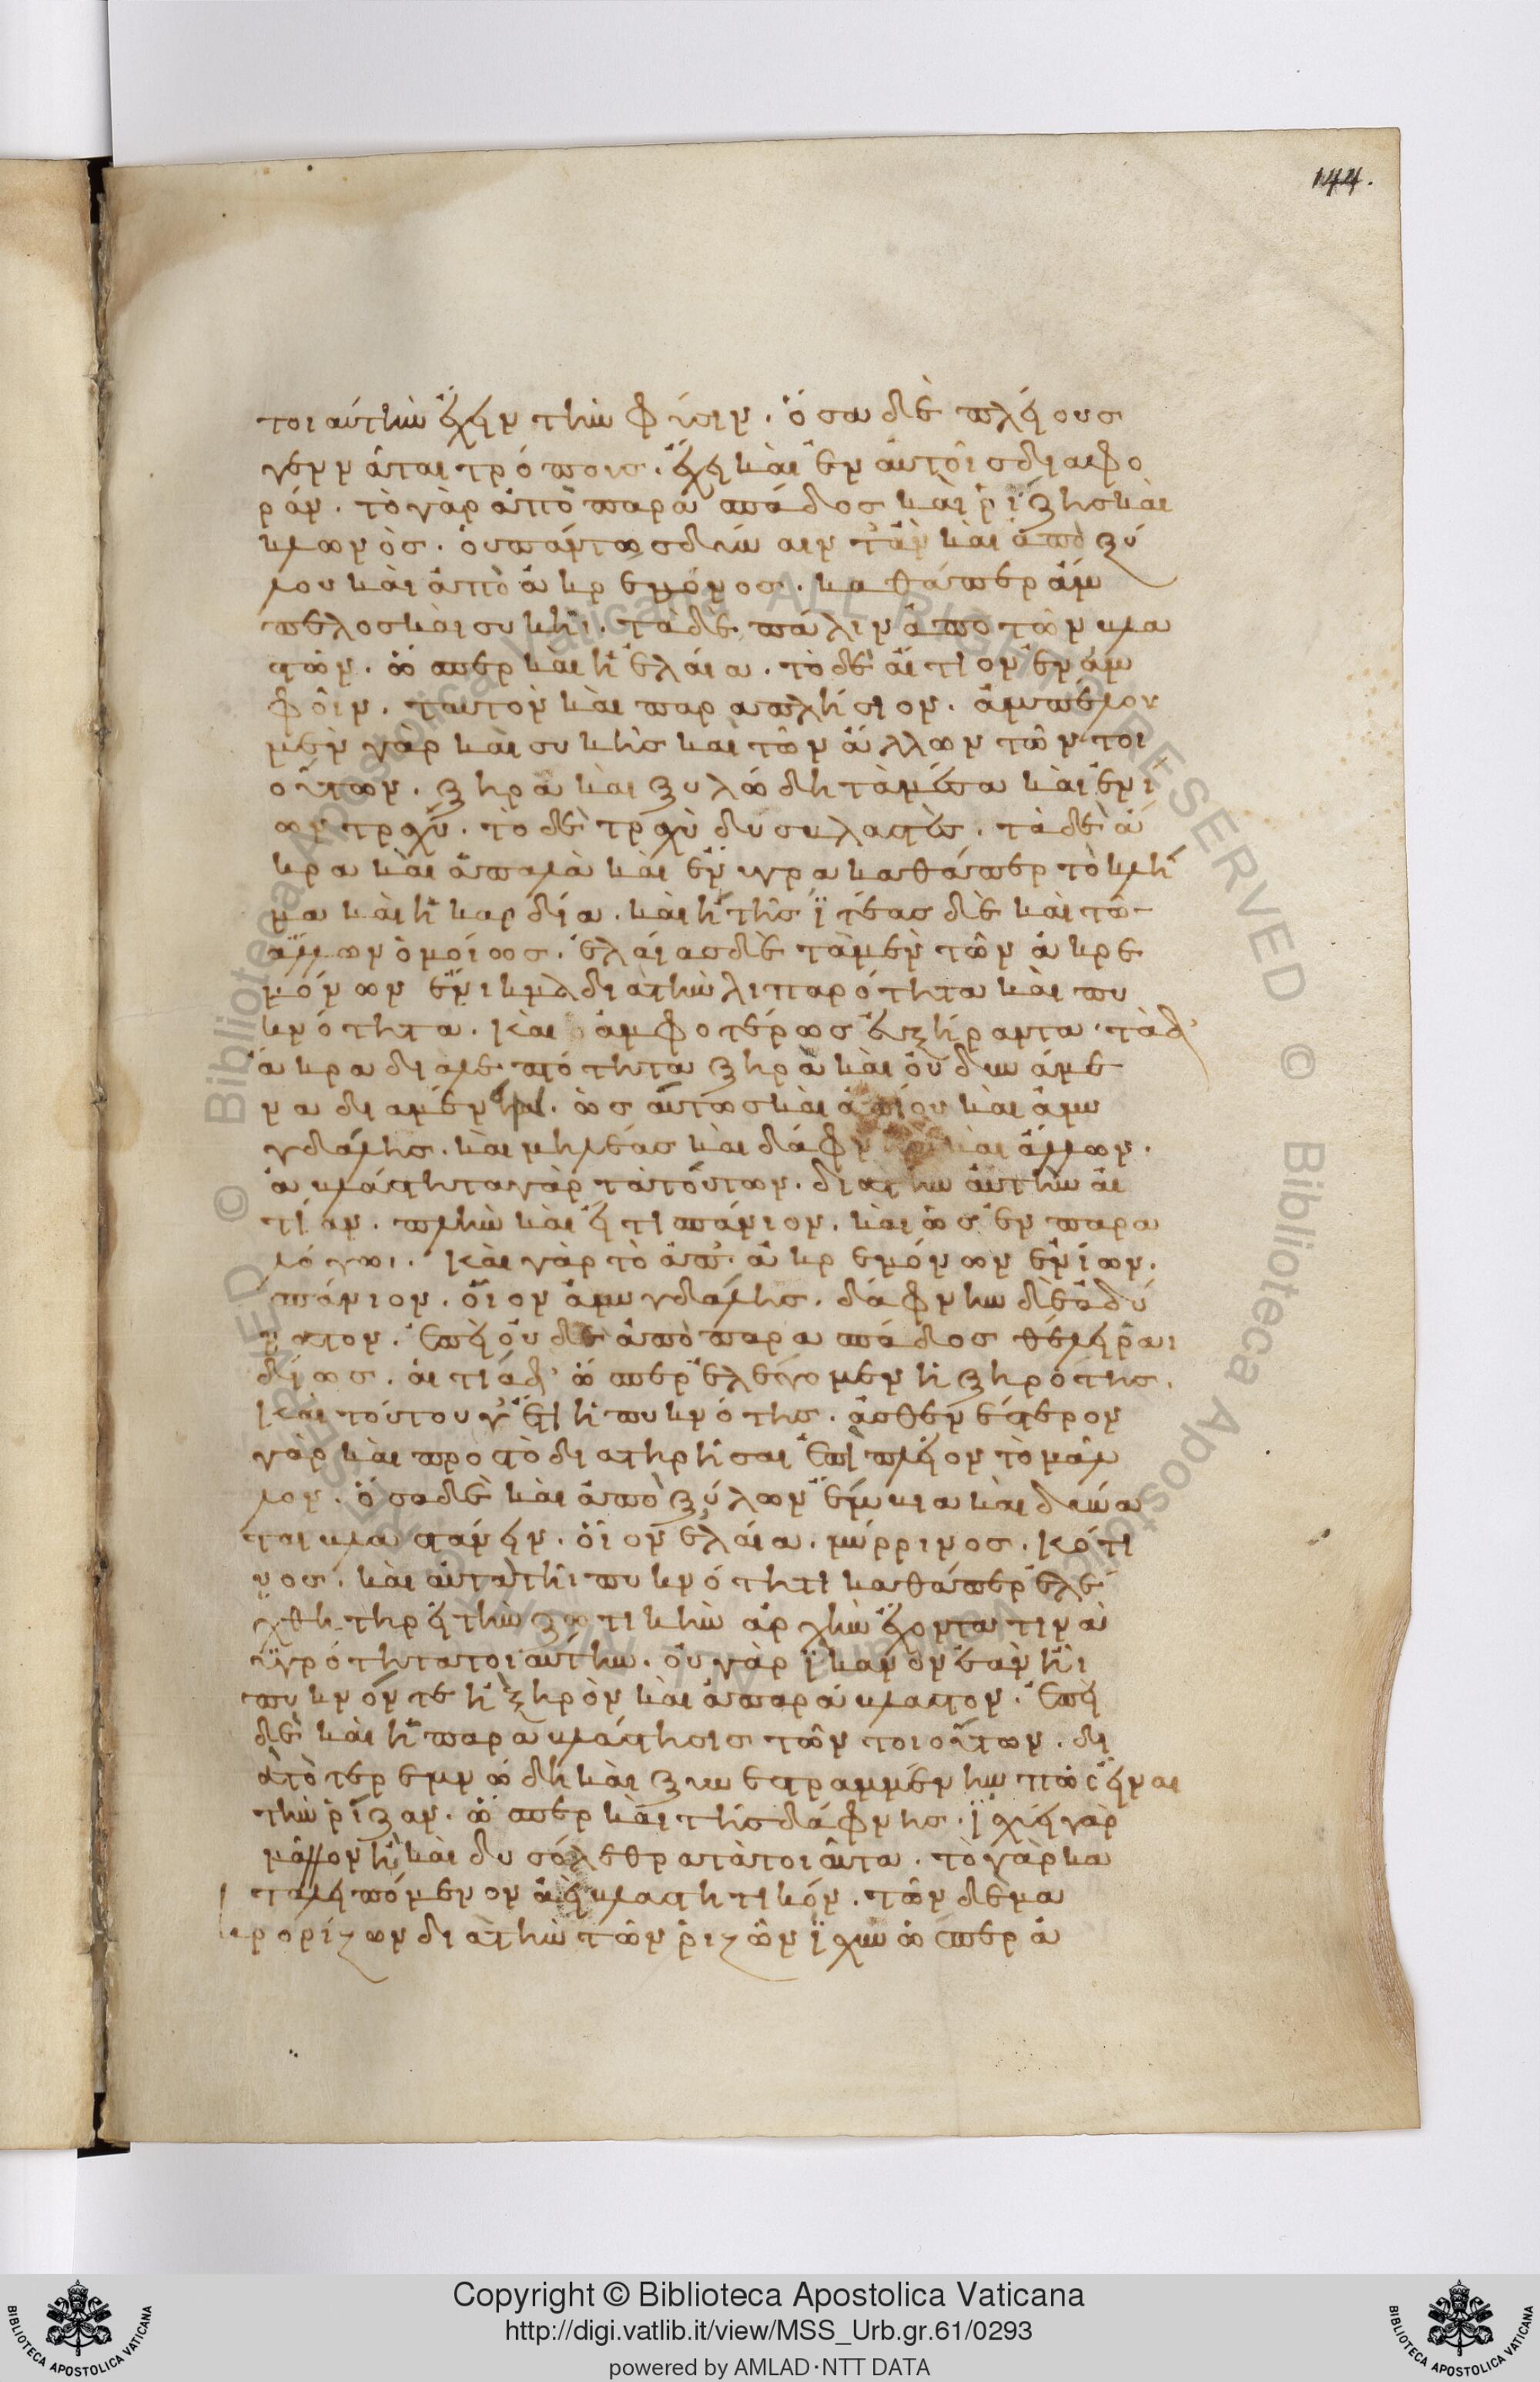 144.
τοιαύτην ἔχειν τὴν φύσιν. ὅσα δὲ πλείους
γεννᾶται τρόπους. ἔχει καὶ ἐν αὐτοῖς διαφο
ράν. τὸ γὰρ ἀπὸ παρασπάδος καὶ ῥίζης καὶ
κλωνὸς. οὐ πάντως δύναιν τ' ἂν καὶ ἀπὸ ξύ
λου καὶ ἀπὸ ἀκρεμόνος. καθάπερ ἄμ
πελος καὶ συκῆι. τὰ δὲ πάλιν ἀπὸ τῶν κλα
στῶν. ὥσπερ καὶ ἡ ἐλαία. τὸ δὲ αἴτιον ἐν ἀμ
φοῖν. ταυτὸν καὶ παραπλήσιον. ἀμπέλου
μὲν γὰρ καὶ συκῆς καὶ τῶν ἄλλων τῶν τοι
ούτων. ξηρὰ καὶ ξυλώδη τὰ μέσα καὶ ἐνί
ων τραχύ. τὸ δὲ τραχὺ δυσκλαστὲς. τὰ δὲ ἄ
κρα καὶ ἁπαλὰ καὶ ἔνυγρα καθάπερ τὸ κλῆ
μα καὶ ἡ καρδία. καὶ ἡ τῆς ἰτέας δὲ καὶ τῶν
ἄλλων ὁμοίως. ἐλαίας δὲ τὰ μὲν τῶν ἀκρε
μόνων ἔνικμα διὰ τὴν λιπαρότητα καὶ πυ
κνότητα. καὶ ἀμφοτέρως ἀξήραντα. τὰ δ'
ἄκρα διὰ λεπτότητα ξηρὰ καὶ οὐ δυνάμε
να διαμένειν. ὡσαύτως καὶ ἀπίου καὶ ἀμυ
γδάλης. καὶ μηλέας καὶ δάφνης καὶ ἄλλων.
ἀκλάστητα γὰρ τὰ τούτων. διὰ τὴν αὐτὴν αἰ
τίαν. πλὴν καὶ εἴ τι σπάνιον. καὶ ὡς ἐν παρα
λόγωι. καὶ γὰρ τὸ ἀπ' ἀκρεμόνων ἐνίων.
σπάνιον. οἷον ἀμυγδάλης. δάφνην δὲ ἀδύ
νατον. ἐπεὶ οὐδὲ ἀπὸ παρασπάδος θέλει ῥαι
δίως. αἰτία δ' ὥσπερ ἐλέγομεν ἡ ξηρότης.
καὶ τούτου γ' ἔτι ἡ πυκνότης. ἀσθενέστερον
γὰρ καὶ προς τὸ διατηρῆσαι ἐπὶ πλεῖον τὸ μαλ
λον. ὅσα δὲ καὶ ἀπὸ ξύλων ἔμβια καὶ δύνα
ται κλαστάνειν. οἷον ἐλάα. μύρρινος. κότι
νος. καὶ αὐτὰ τῆι πυκνότητι καθάπερ ἐλέ
χθη τηρεῖ τὴν ζωτικὴν ἀρχὴν ἔχοντα τινὰ
ὑγρότητα τοιαύτην. οὐ γὰρ ἱκανὸν ἐὰν ἦι
πυκνόν τε ἢ ξηρὸν καὶ ἀπαράκλαστον. ἐπεὶ
δὲ καὶ ἡ παρακλάστησις τῶν τοιούτων. δι
ὰ τὸ τερεμνώδη καὶ ξυνεστραμμένην πως εἶναι
τὴν ῥίζαν. ὥσπερ καὶ τῆς δάφνης. ἰσχύει γὰρ
μᾶλλον ἢ καὶ δυσώλεθρα τὰ τοιαῦτα. τὸ γὰρ κα
ταλειπόμενον ἀεὶ κλαστητικόν. τῶν δὲ μα
κρορίζων διὰ τὴν τῶν ῥιζῶν ἰσχὺν ὥσπερ ἀ
Copyright © Biblioteca Apostolica Vaticana
http://digi.vatlib.it/view/MSS_Urb.gr.61/0293
powered by AMLAD·NTT DATA
BIBLIOTECA APOSTOLICA VATICANA
BIBLIOTECA APOSTOLICA VATICANA